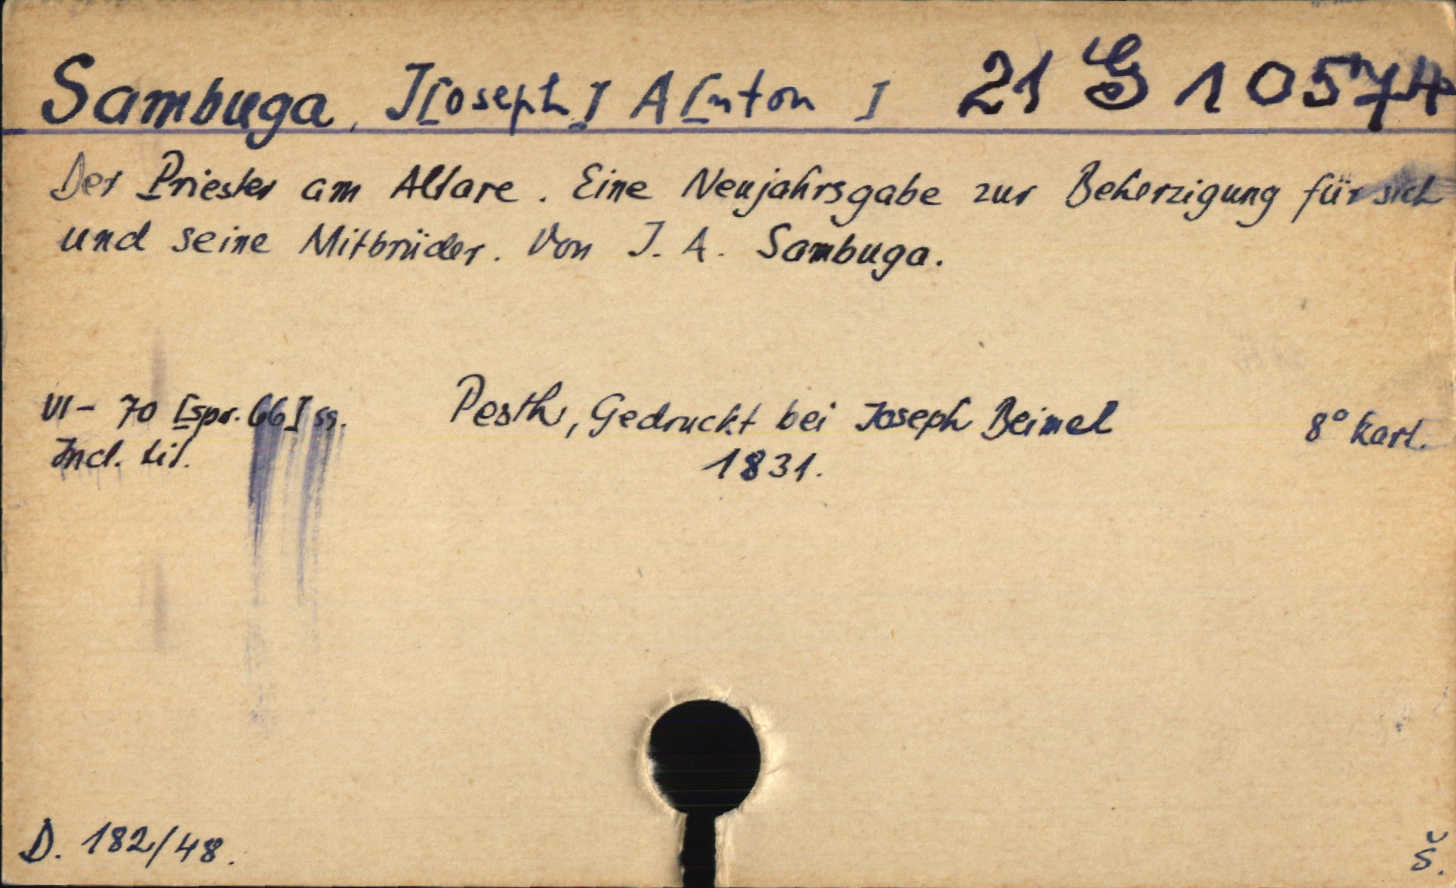 Sambuga, J[oseph] A[nton] 21 G 10574
Der Priester am Altare. Eine Neujahrsgabe zur Beherzigung für sich
und seine Mitbrüder. Von J. A. Sambuga.
VI - 70 [spr. 66] ss. Pesth, Gedruckt bei Joseph Beimel 8° kart.
Incl. tit. 1831.
D. 182/48. š.